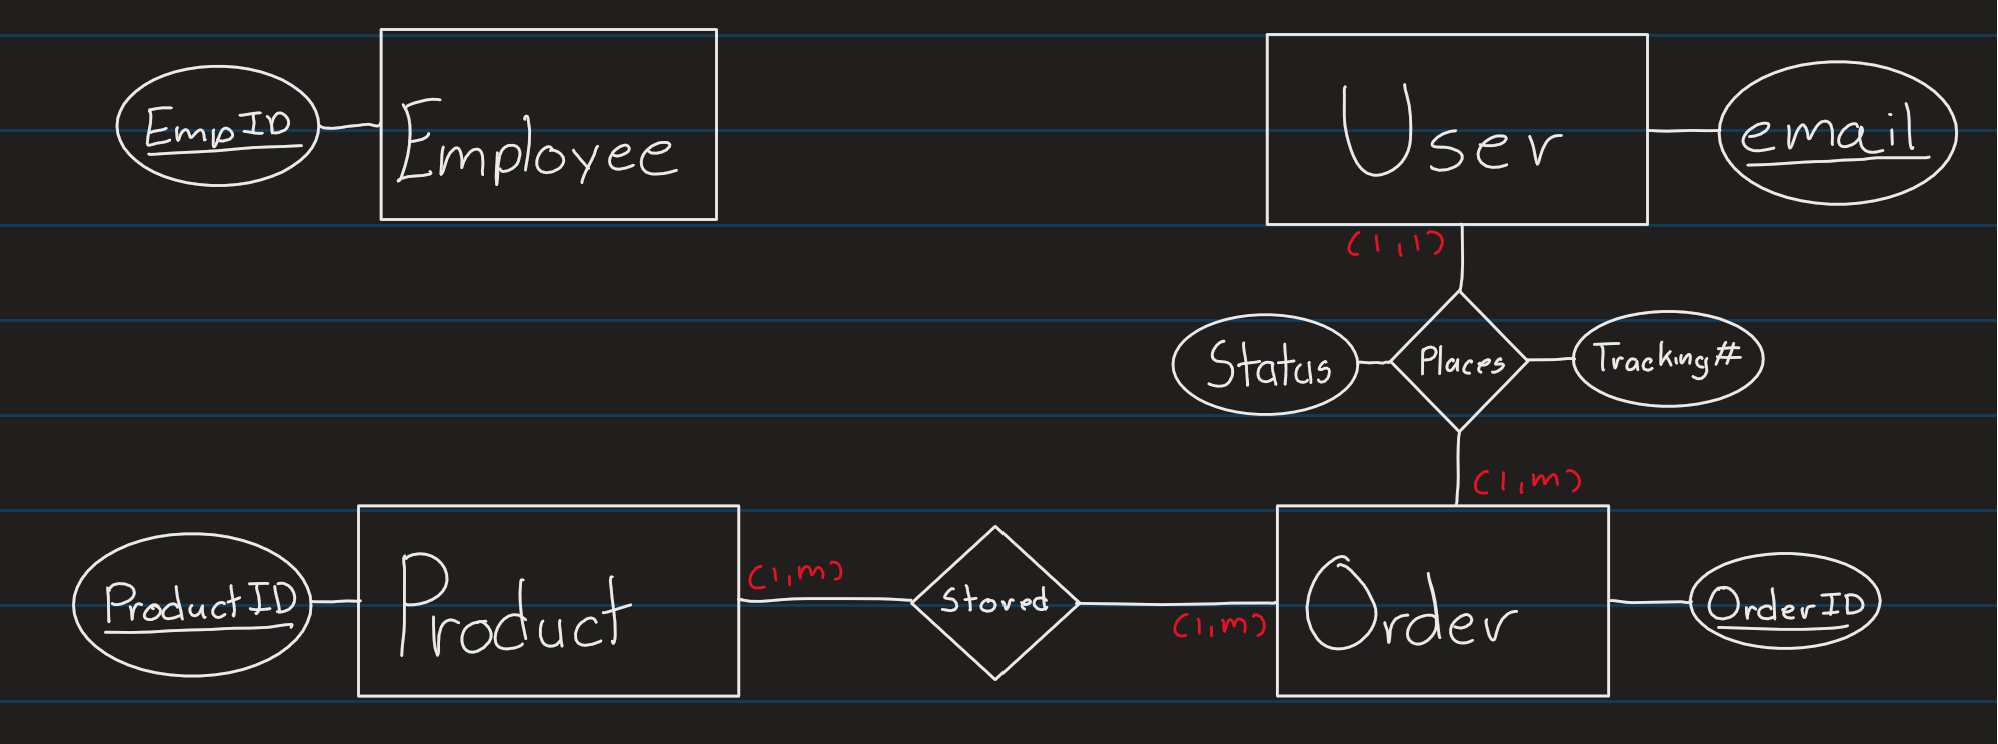 EmpID
Employee
User
email
(1,1)
Status
Places
Tracking#
(1,m)
ProductID
Product
(1,m)
Stored
(1,m)
Order
OrderID